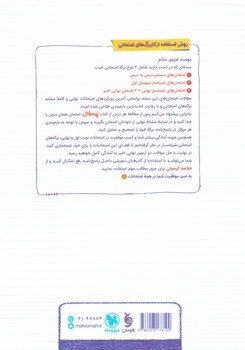 روش استفاده از کاربرگ‌های امتحانی
دوست عزیزم، سلام
بسته‌ای که در دست دارید شامل ۳ نوع برگهٔ امتحانی است.
امتحان‌های مستمر درس به درس
امتحان‌های شبیه‌ساز نیم‌سال اول
امتحان‌های شبیه‌ساز نهایی + ۲ امتحان نهایی اخیر
سؤالات امتحان‌های این بسته، براساس آخرین رویکردهای امتحانات نهایی و کاملاً مشابه
برگه‌های امتحانی و با رعایت جدیدترین بارم‌بندی طراحی شده است.
بنابراین پیشنهاد می‌کنیم پس از مطالعهٔ هر درس از کتاب امتحان همان درس را
جدا کنید و در شرایط مشابه نهایی از خودتان امتحان بگیرید و سپس با توجه به بارم‌بندی
هر سؤال در پاسخ‌نامه، برگهٔ خود را تصحیح و تحلیل کنید.
برای آمادگی بیشتر و کسب موفقیت در امتحانات نوبت اول و نهایی، برگه‌های
امتحانی شبیه‌ساز در نظر گرفته‌ایم تا فضای این امتحانات را برای خود شبیه‌سازی کنید.
در نهایت با حل سؤالات دو آزمون نهایی اخیر به آمادگی کامل خواهید رسید.
شما می‌توانید با استفاده از کاربرگ‌های آموزشی داخل پاسخ‌نامه، رفع اشکال کنید و از
خلاصه کپسولی برای مرور مطالب مهم استفاده نمایید.
به امید موفقیت شما در همهٔ امتحانات
مهروماه
۰۲۱-۹۶۸۸۴
mehromah.ir